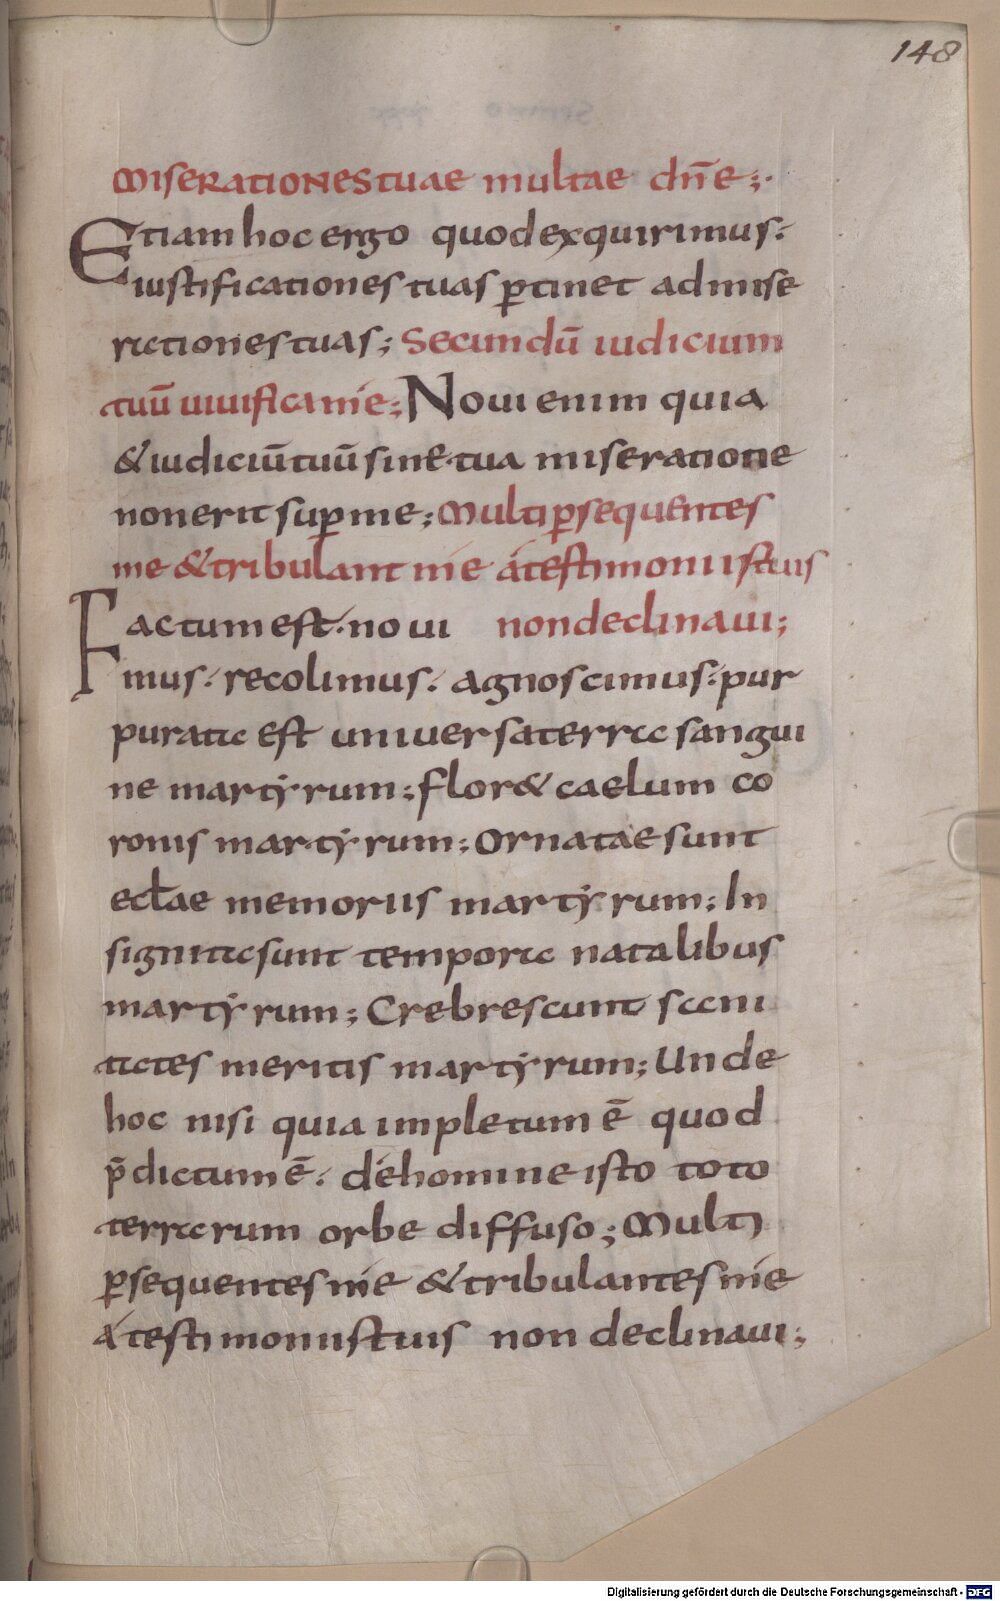 148
miserationes tuae multae dn̄e;
Etiam hoc ergo quod exquirimus.
iustificationes tuas ptinet ad mise
rationes tuas; Secundū iudicium
tuū uiuifica me; Noui enim quia
& iudiciū tuū sine tua miseratione
non erit sup me; Multi psequentes
me & tribulant me a testimoniis tuis
Factum est. noui non declinaui;
mus. recolimus. agnoscimus. pur
purata est uniuersa terra sangui
ne martyrum; flor& caelum co
ronis martyrum; Ornatae sunt
eclae memoriis martyrum; In
signita sunt tempora natalibus
martyrum; Crebrescunt sani
tates meritis martyrum; Unde
hoc nisi quia impletum ē quod
p̄dictum ē. de homine isto toto
terrarum orbe diffuso; Multi
psequentes me & tribulantes me
a testimoniis tuis non declinaui;
Digitalisierung gefördert durch die Deutsche Forschungsgemeinschaft - DFG